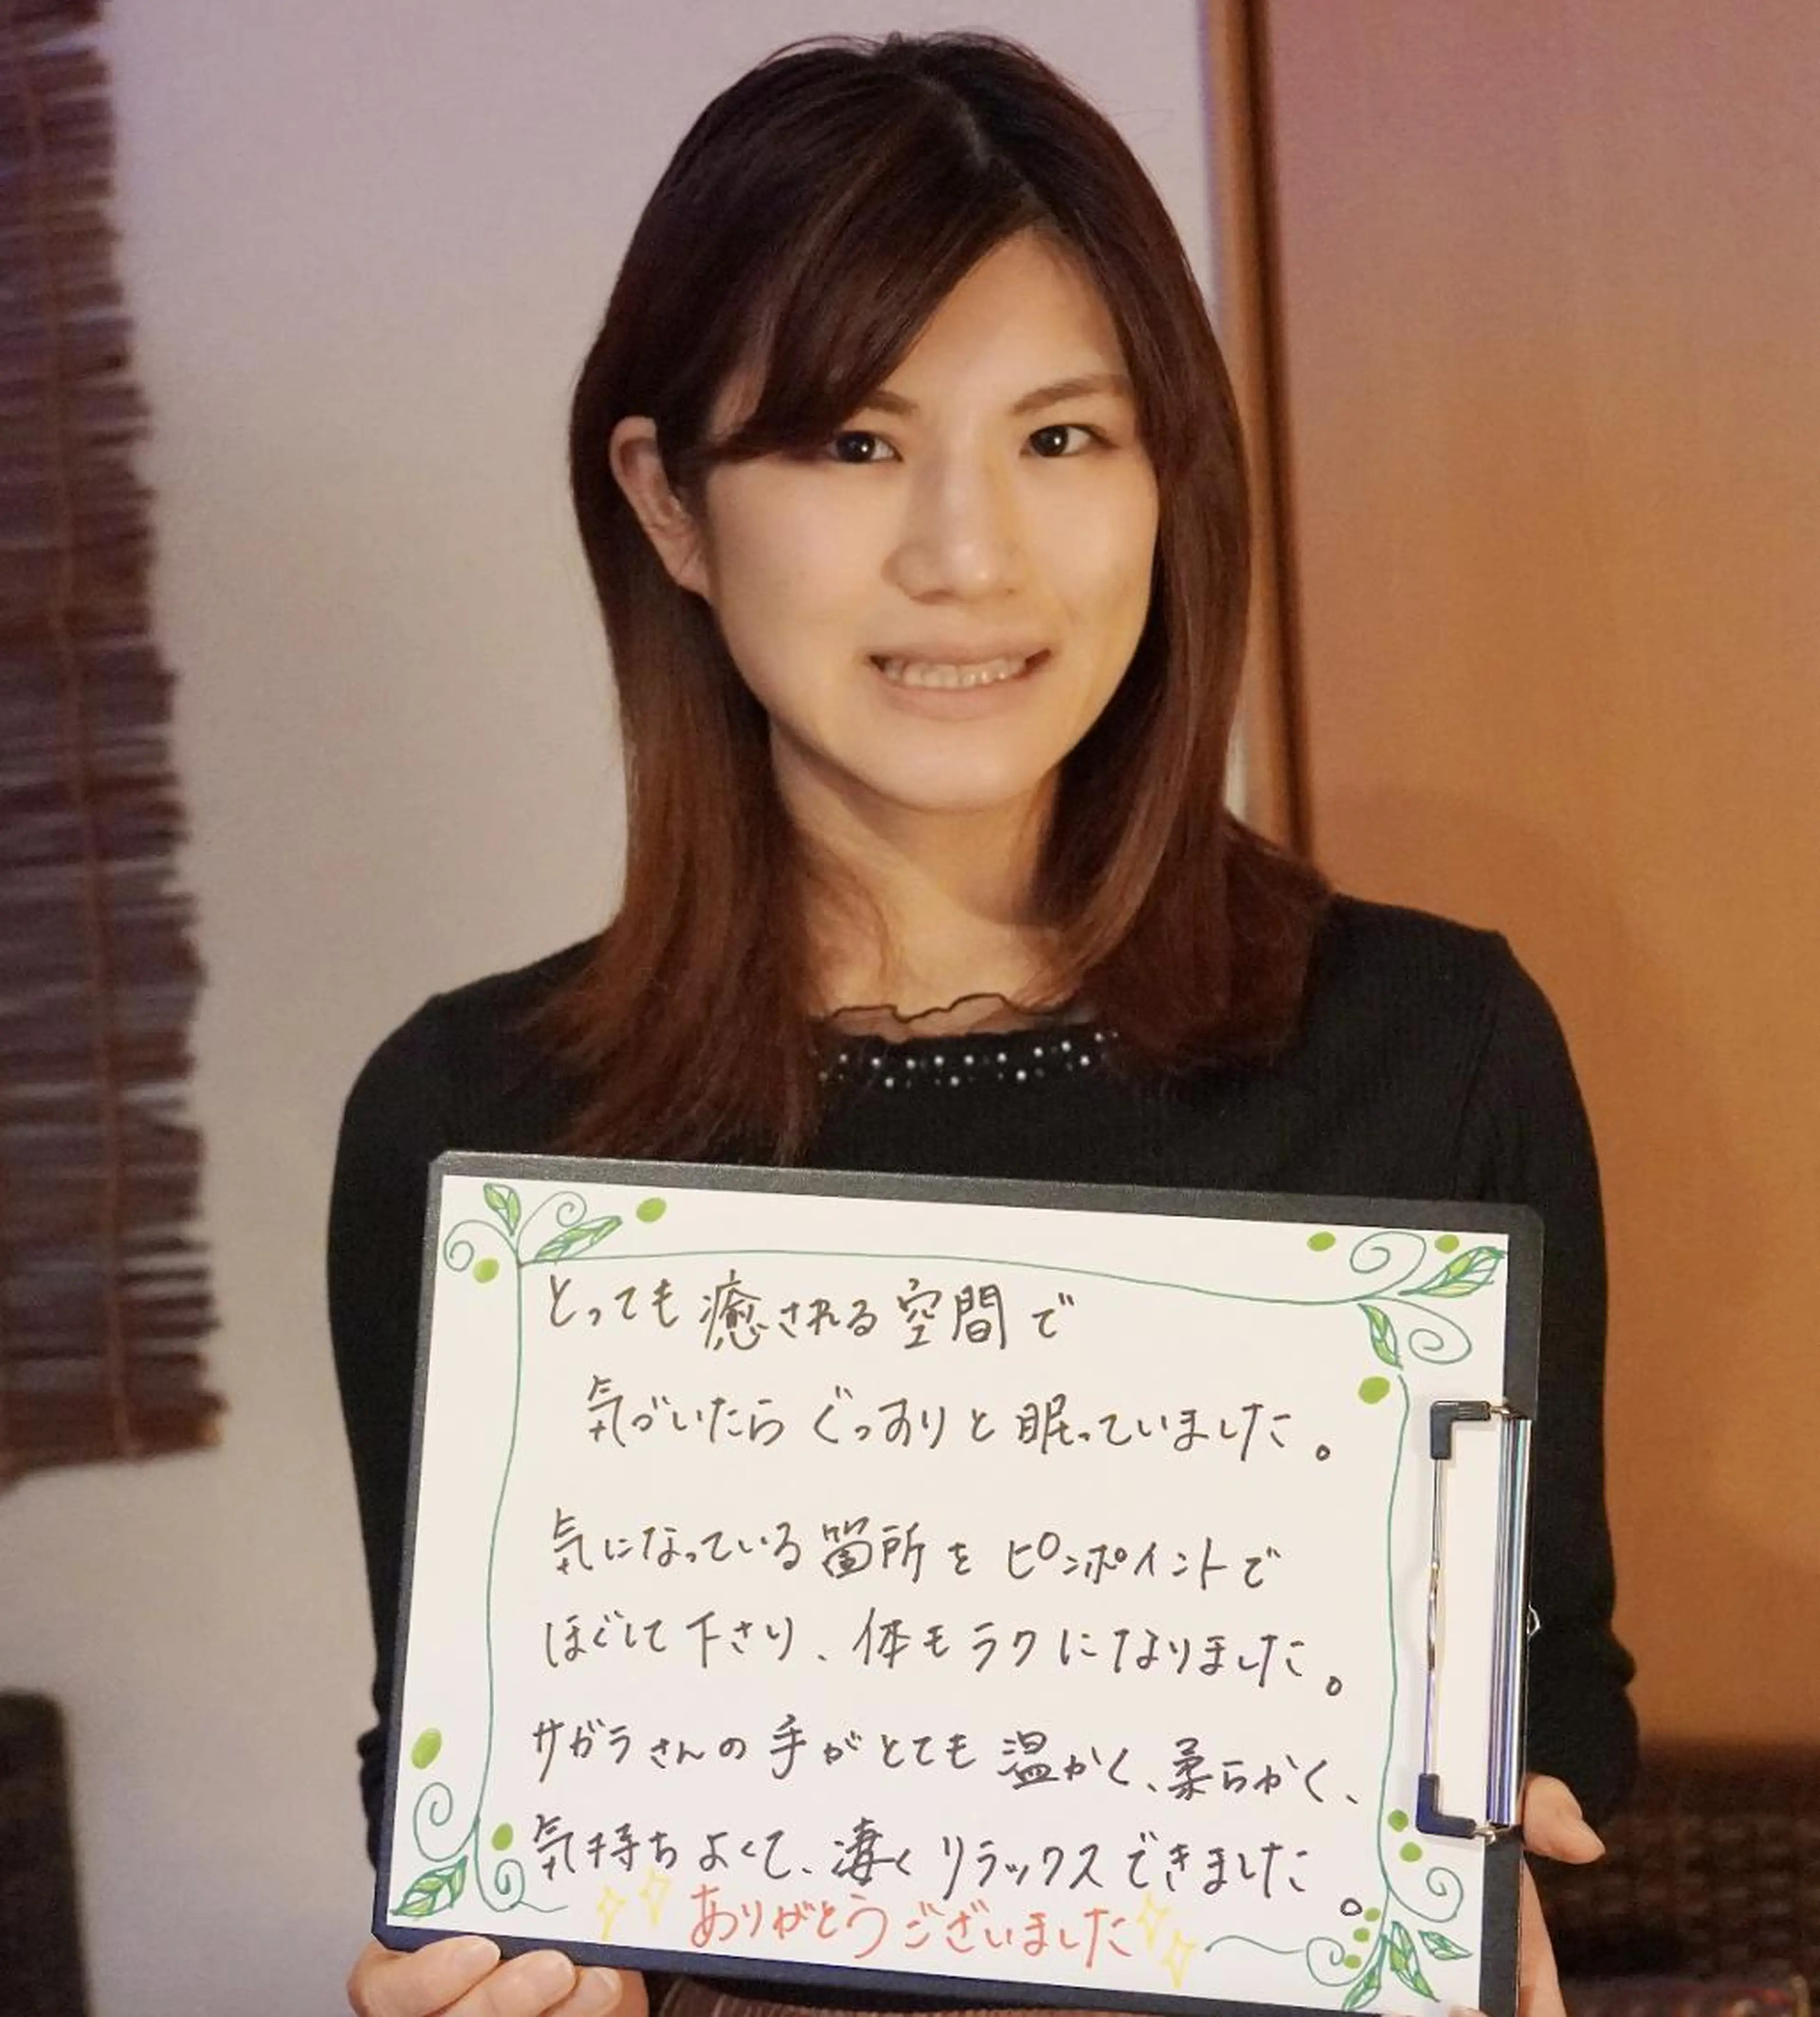 とっても癒される空間で
気づいたらぐっすりと眠っていました。
気になっている箇所をピンポイントで
ほぐして下さり、体もラクになりました。
サガラさんの手がとても温かく、柔らかく、
気持ちよくて、凄くリラックスできました。
ありがとうございました